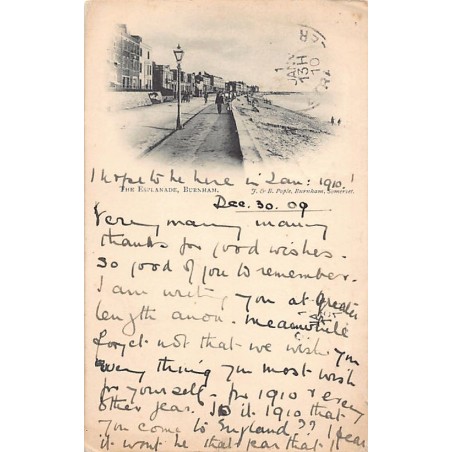 JAN 1
13H
10
I hope to be here in Jan: 1910!
THE ESPLANADE, BURNHAM.
J. & B. Pople, Burnham, Somerset.
Dec. 30. 09
Very, many many
thanks for good wishes.
So good of you to remember.
I am writing you at greater
length anon. Meanwhile
forget not that we wish you
every thing you most wish
for yourself - for 1910 & every
other year. Is it 1910 that
you come to England?? I fear
it wont be that year that I